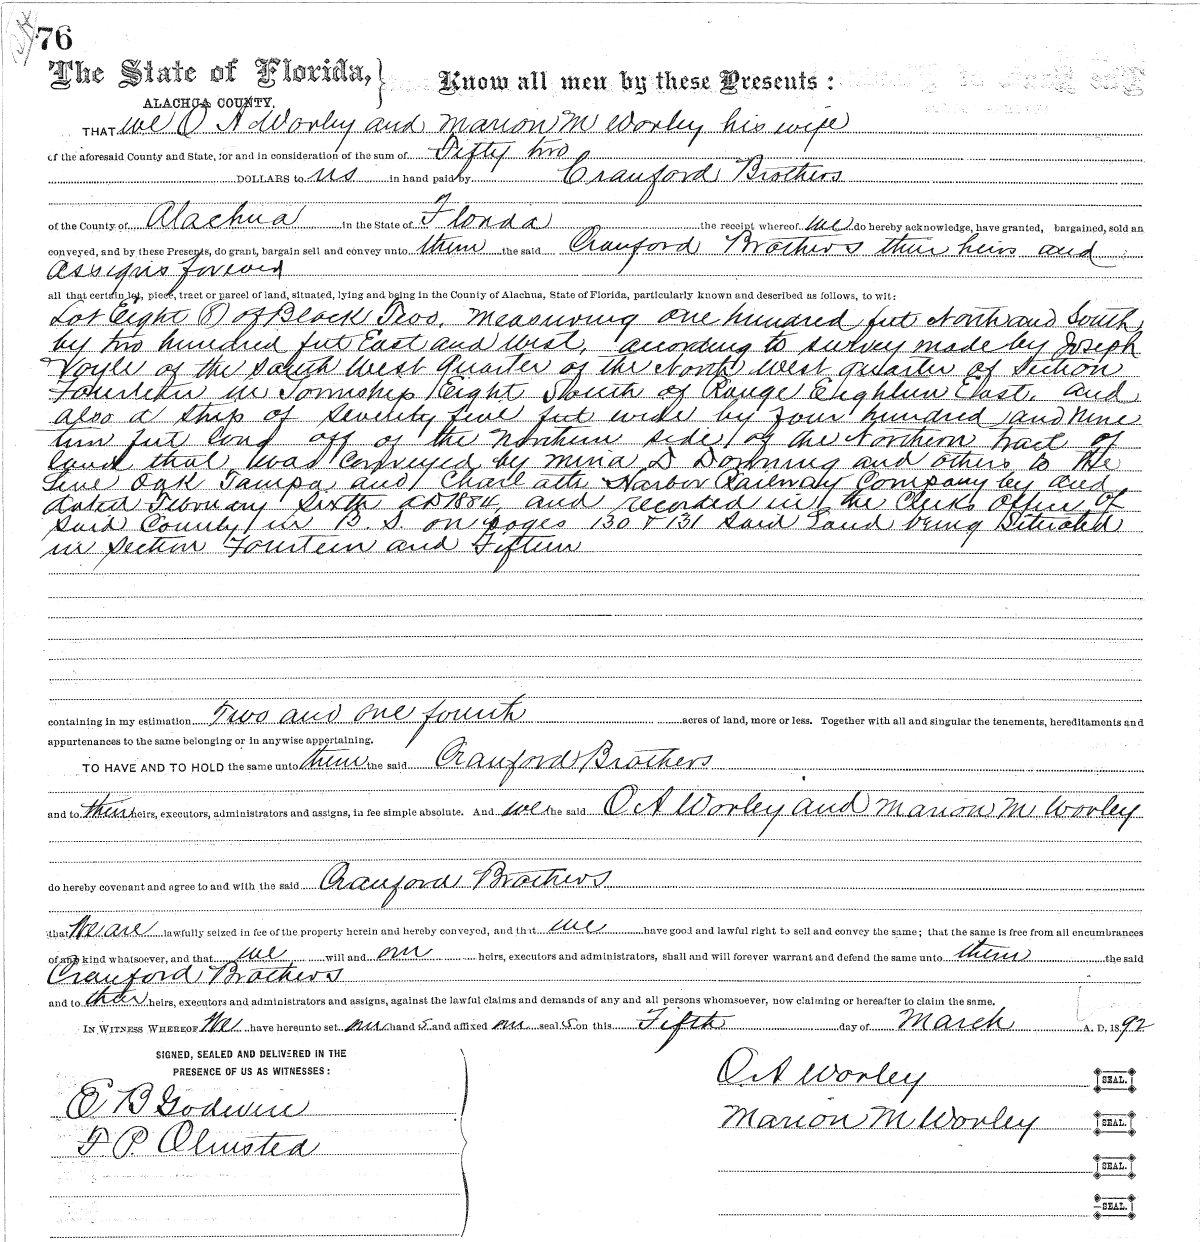 76
The State of Florida,
Know all men by these Presents:
ALACHUA COUNTY.
THAT we O A Worley and Marion M Worley his wife
of the aforesaid County and State, for and in consideration of the sum of Fifty two
DOLLARS to us in hand paid by Cranford Brothers
of the County of Alachua in the State of Florida the receipt whereof we do hereby acknowledge, have granted, bargained, sold an
conveyed, and by these Presents, do grant, bargain sell and convey unto them the said Cranford Brothers their heirs and
assigns forever
all that certain lot, piece, tract or parcel of land, situated, lying and being in the County of Alachua, State of Florida, particularly known and described as follows, to wit:
Lot Eight (8) of Block Two, measuring one hundred feet North and South
by two hundred feet East and West, according to survey made by Joseph
Voyle of the South West Quarter of the North West quarter of Section
Fourteen in Township Eight South of Range Eighteen East, and
also a strip of seventy five feet wide by Four hundred and Nine
teen feet long off of the northern side of the Northern Tract of
land that was conveyed by Mina D Downing and others to the
Live Oak Tampa and Charlotte Harbor Railway Company by deed
dated February Sixth AD 1884, and recorded in the Clerks Office of
said County in B. S. on pages 130 & 131 said Land being Situated
in Section Fourteen and Fifteen
containing in my estimation Two and one fourth acres of land, more or less. Together with all and singular the tenements, hereditaments and
appurtenances to the same belonging or in anywise appertaining.
TO HAVE AND TO HOLD the same unto them the said Cranford Brothers
and to their heirs, executors, administrators and assigns, in fee simple absolute. And we the said O A Worley and Marion M Worley
do hereby covenant and agree to and with the said Cranford Brothers
that We are lawfully seized in fee of the property herein and hereby conveyed, and that we have good and lawful right to sell and convey the same; that the same is free from all encumbrances
of any kind whatsoever, and that we will and our heirs, executors and administrators, shall and will forever warrant and defend the same unto them the said
Cranford Brothers
and to their heirs, executors and administrators and assigns, against the lawful claims and demands of any and all persons whomsoever, now claiming or hereafter to claim the same.
IN WITNESS WHEREOF We have hereunto set our hand s and affixed our seal s on this Fifth day of March A. D. 1892
SIGNED, SEALED AND DELIVERED IN THE
PRESENCE OF US AS WITNESSES:
O. A Worley SEAL.
E B Godwin
Marion M Worley SEAL.
F. P. Olmsted
SEAL.
SEAL.